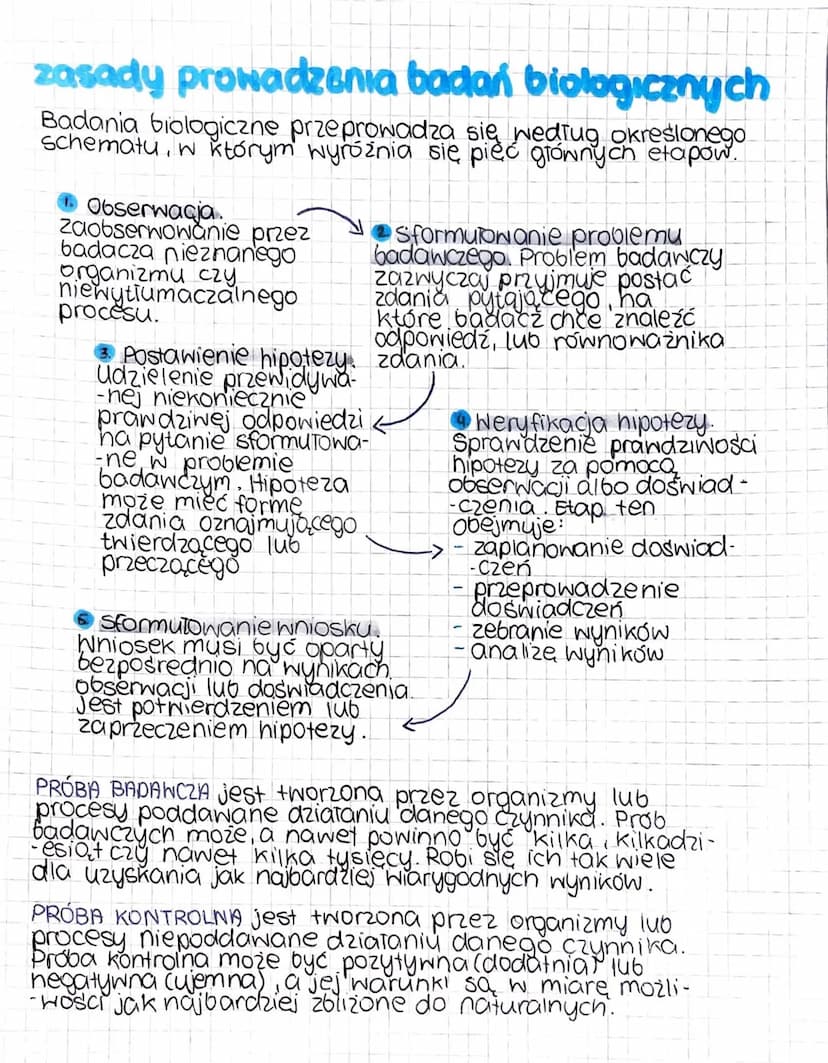 zasady prowadzenia badań biologicznych
Badania biologiczne przeprowadza się według określonego
schematu, w którym wyróżnia się pięć głównych etapów.
1. Obserwacja.
zaobserwowanie przez
badacza nieznanego
organizmu czy
niewytłumaczalnego
procesu.
2. Sformułowanie problemu
badawczego. Problem badawczy
zazwyczaj przyjmuje postać
zdania pytającego, na
które badacz chce znaleźć
odpowiedź, lub równoważnika
zdania.
3. Postawienie hipotezy.
udzielenie przewidywa-
-nej niekoniecznie
prawdziwej odpowiedzi
na pytanie sformułowa-
-ne w problemie
badawczym. Hipoteza
może mieć formę
zdania oznajmującego
twierdzącego lub
przeczącego
4. Weryfikacja hipotezy.
Sprawdzenie prawdziwości
hipotezy za pomocą
obserwacji albo doświad-
-czenia. Etap ten
obejmuje:
- zaplanowanie doświad-
-czeń
- przeprowadzenie
doświadczeń
- zebranie wyników
- analizę wyników
5. Sformułowanie wniosku.
Wniosek musi być oparty
bezpośrednio na wynikach
obserwacji lub doświadczenia.
Jest potwierdzeniem lub
zaprzeczeniem hipotezy.
PRÓBA BADAWCZA jest tworzona przez organizmy lub
procesy poddawane działaniu danego czynnika. Prób
badawczych może, a nawet powinno być kilka, kilkadzi-
-esiąt czy nawet kilka tysięcy. Robi się ich tak wiele
dla uzyskania jak najbardziej wiarygodnych wyników.
PRÓBA KONTROLNA jest tworzona przez organizmy lub
procesy niepoddawane działaniu danego czynnika.
Próba kontrolna może być pozytywna (dodatnia) lub
negatywna (ujemna), a jej warunki są w miarę możli-
-wości jak najbardziej zbliżone do naturalnych.